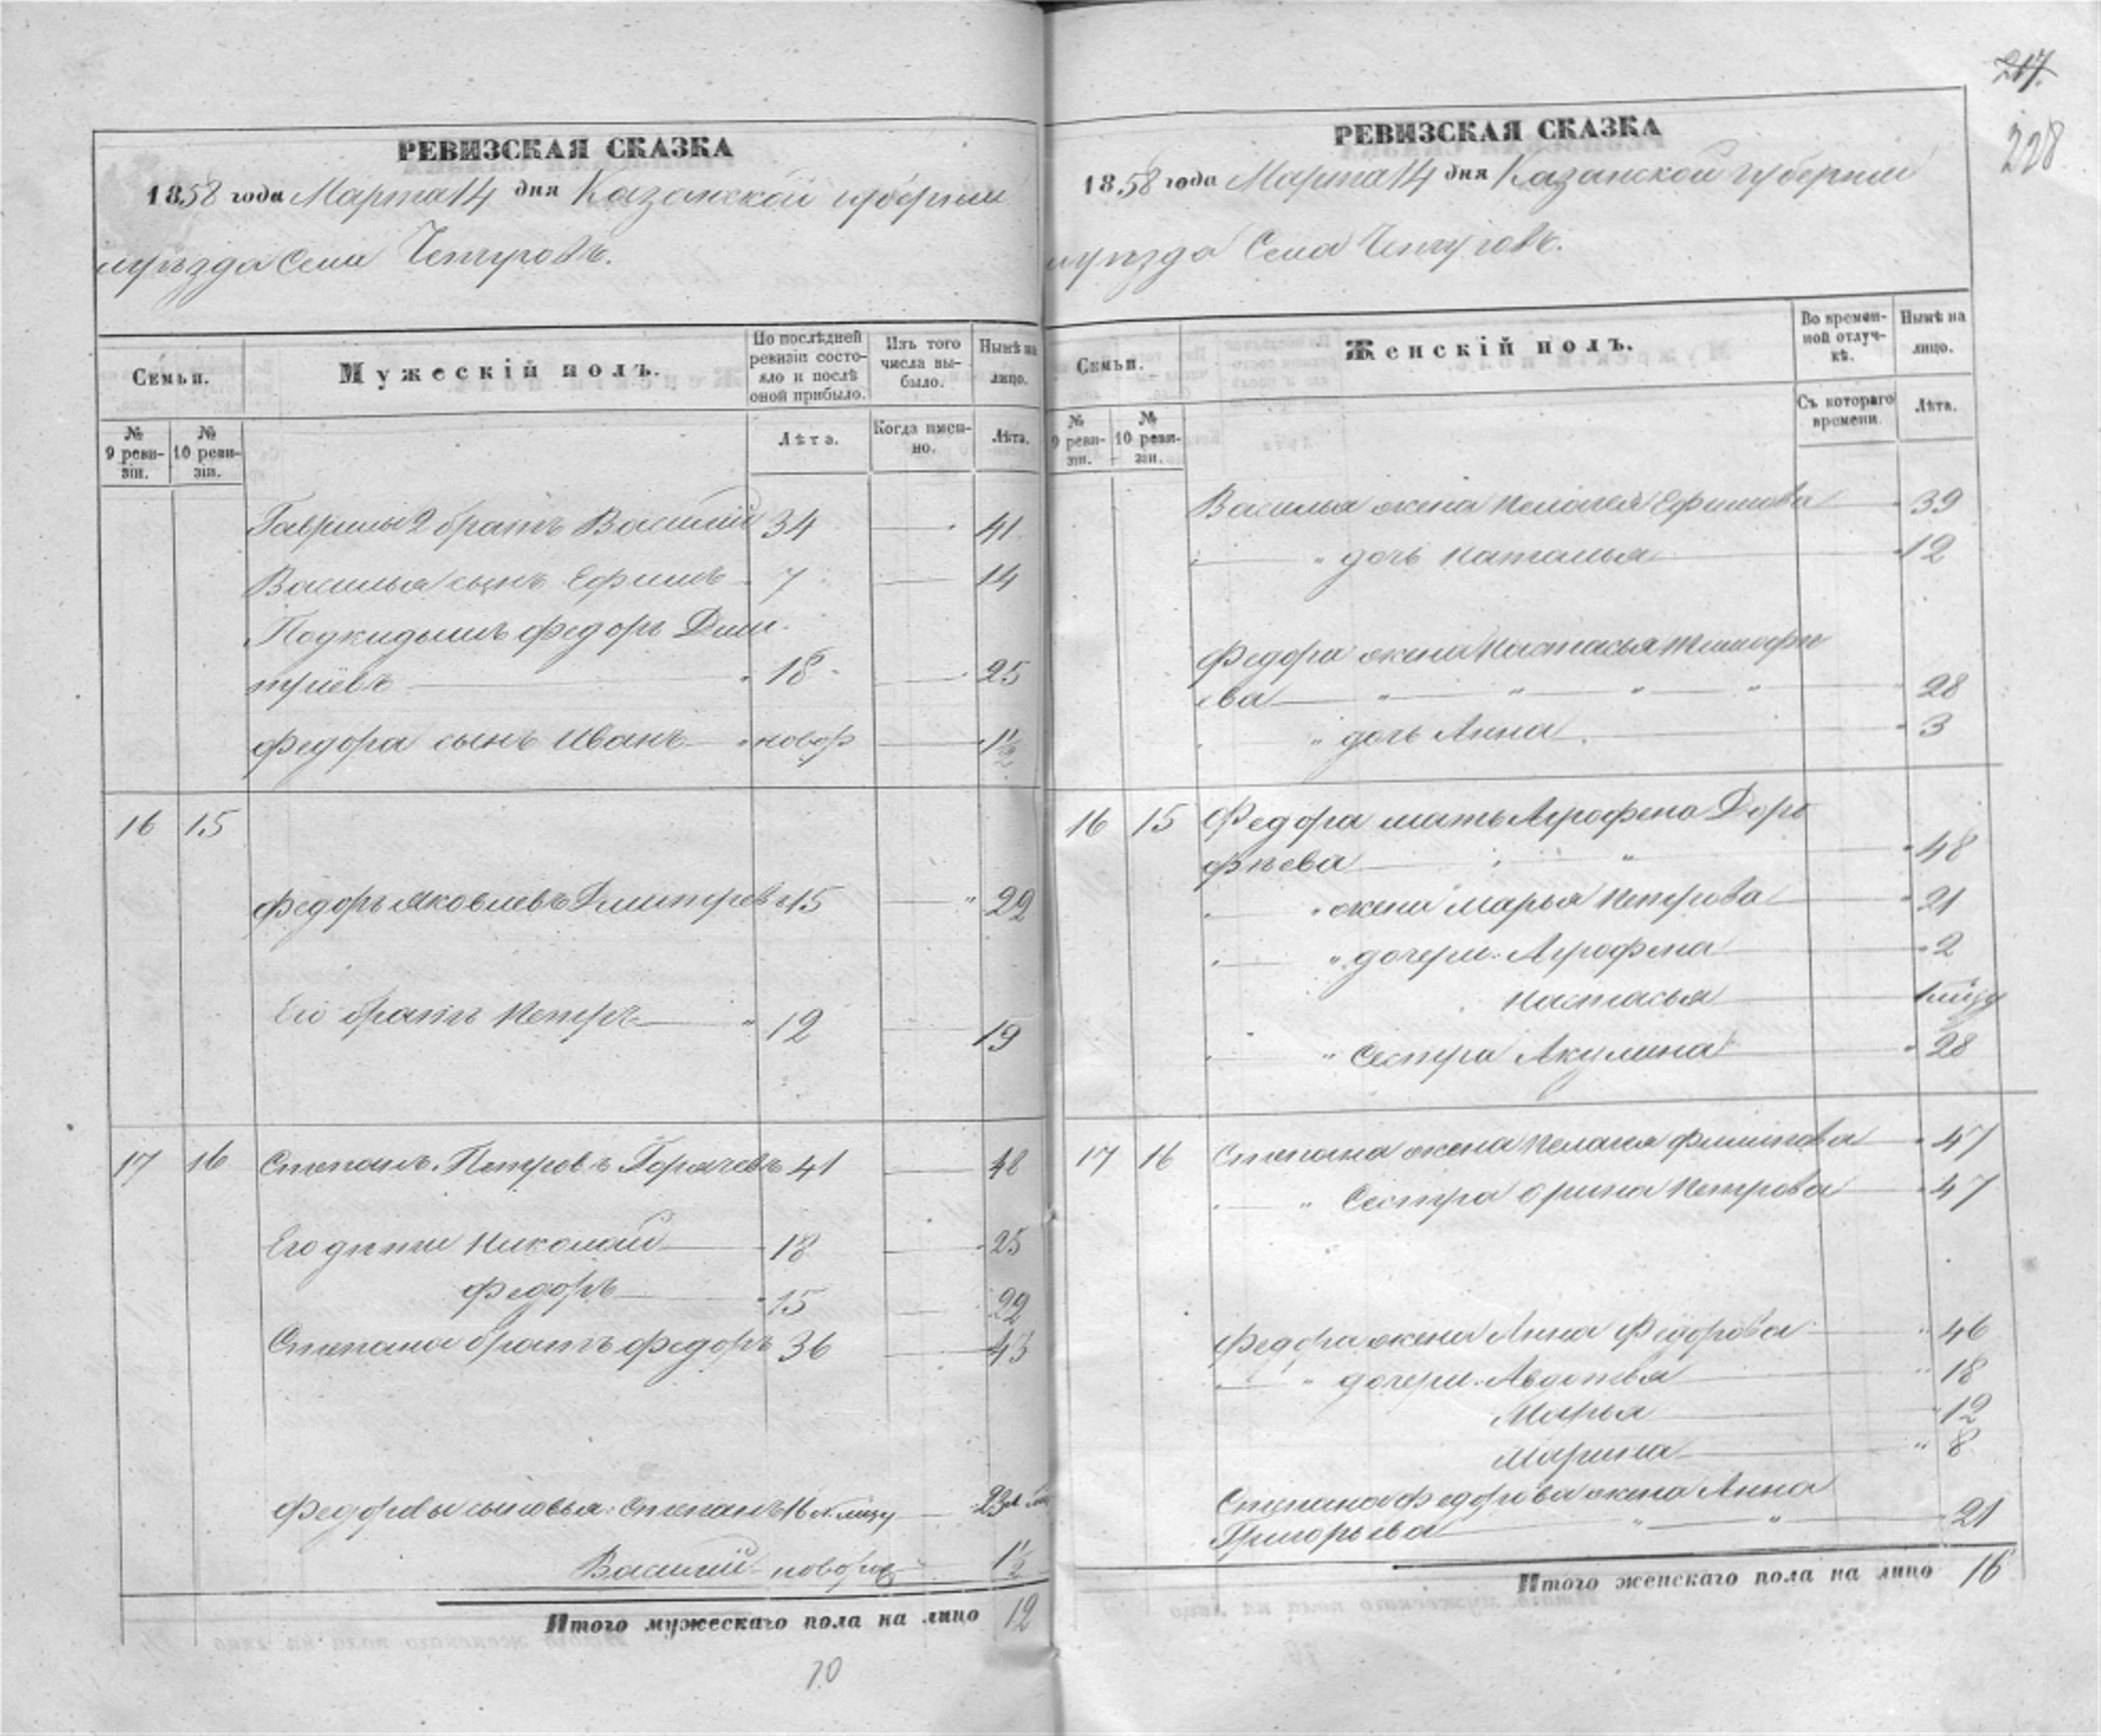 РЕВИЗСКАЯ СКАЗКА
1858 года Марта 14 дня Казанской губерніи
уѣзда Села
Семьи.
Мужескій полъ.
По послѣдней ревизіи состояло и послѣ оной прибыло.
Изъ того числа выбыло.
Нынѣ на лицо.
№ 9 ревизіи.
№ 10 ревизіи.
Лѣта.
Когда именно.
Лѣта.
Гаврилы 2 братъ Василій 34 41
Василья сынъ Ефимъ 7 14
Подкидышъ Федоръ Дми-
тріевъ 18 25
Федора сынъ Иванъ новор 1½
16 15
Федоръ Яковлевъ Дмитревъ 15 22
Его братъ Петръ 12 19
17 16 Степанъ Петровъ Горячевъ 41 48
Его дѣти Николай 18 25
Федоръ 15 22
Степана братъ Федоръ 36 43
Федоровы сыновья: Степанъ 16 23
Василій новорож 1½
Итого мужескаго пола на лицо 12
10
217.
228
РЕВИЗСКАЯ СКАЗКА
1858 года Марта 14 дня Казанской губерніи
уѣзда Села
Семьи.
Женскій полъ.
Во временной отлучкѣ.
Нынѣ на лицо.
№ 9 ревизіи.
№ 10 ревизіи.
Съ котораго времени.
Лѣта.
Василья жена Пелагея Ефимова 39
" дочь Наталья 12
Федора жена Настасья Тимофѣ
ева 28
" дочь Анна 3
16 15 Федора мать Аграфена Доро
фѣева 48
" жена Марья Петрова 21
" дочери: Аграфена 2
Настасья
" Сестра Акулина 28
17 16 Степана жена Пелагея Филипова 47
" Сестра Орина Петрова 47
Федора жена Анна Федорова 46
" дочери: Авдотья 18
Марья 12
Марина 8
Степана Федорова жена Анна
Григорьева 21
Итого женскаго пола на лицо 16